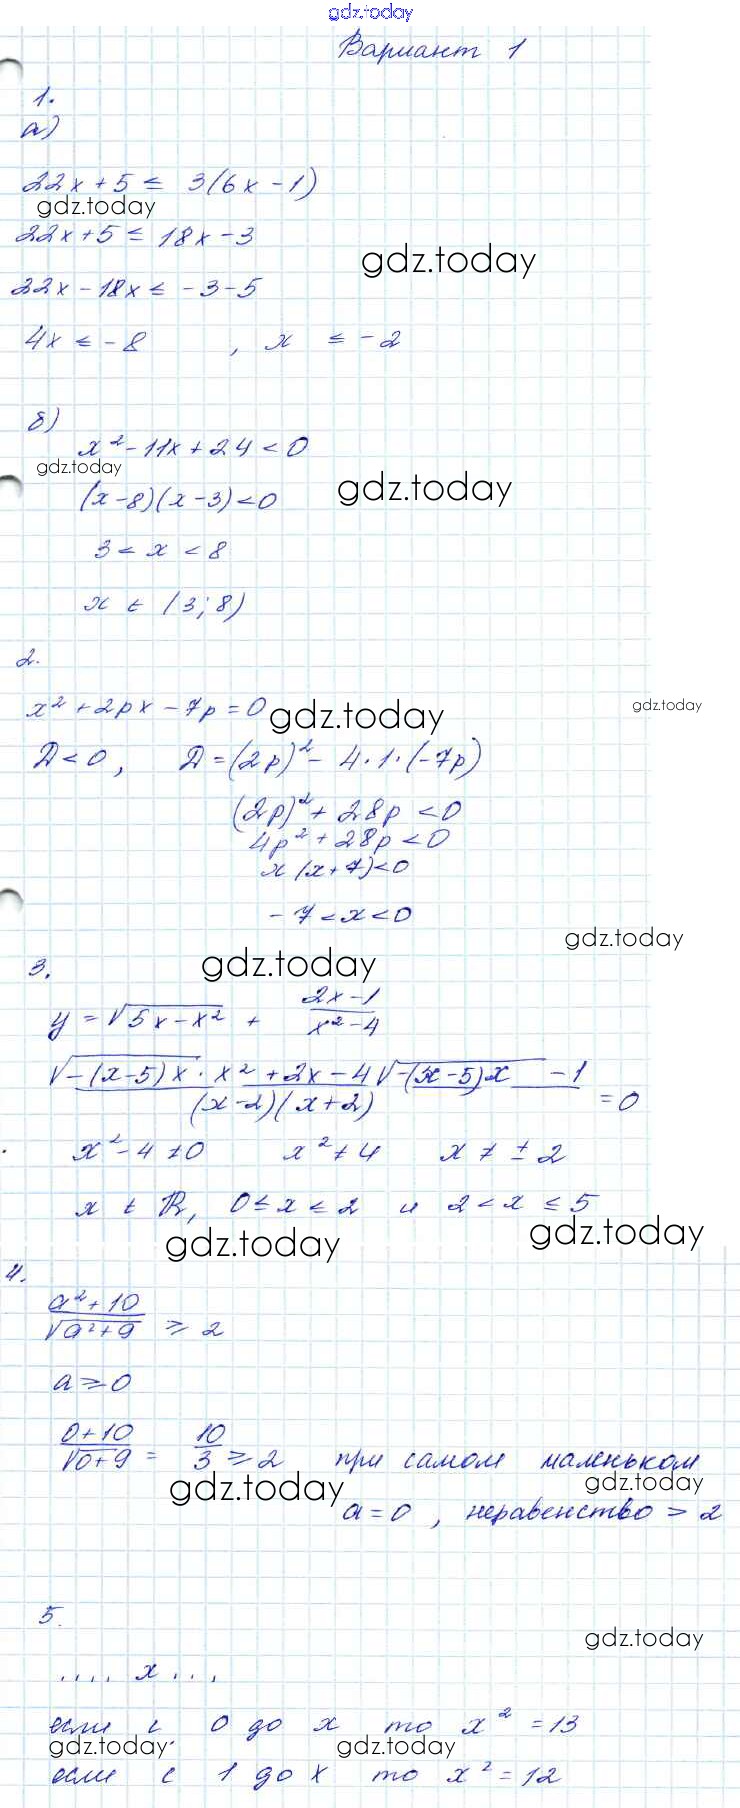 gdz.today
Вариант 1
1.
а)
22x + 5 ≤ 3(6x - 1)
gdz.today
22x + 5 ≤ 18x - 3
gdz.today
22x - 18x ≤ -3 - 5
4x ≤ -8 , x ≤ -2
б)
x² - 11x + 24 < 0
gdz.today
(x - 8)(x - 3) < 0
gdz.today
3 < x < 8
x ∈ (3; 8)
2.
x² + 2px - 7p = 0
gdz.today
gdz.today
Д < 0, Д = (2p)² - 4 · 1 · (-7p)
(2p)² + 28p < 0
4p² + 28p < 0
x(x + 7) < 0
-7 < x < 0
gdz.today
3.
gdz.today
y = √(5x - x²) + (2x - 1)/(x² - 4)
(√(-(x-5)x) · x² + 2x - 4√(-(x-5)x) - 1)/((x-2)(x+2)) = 0
x² - 4 ≠ 0 x² ≠ 4 x ≠ ± 2
x ∈ ℝ, 0 ≤ x ≤ 2 и 2 < x ≤ 5
gdz.today
gdz.today
4.
(a² + 10)/√(a² + 9) ≥ 2
a ≥ 0
(0 + 10)/√(0 + 9) = 10/3 ≥ 2 при самом маленьком
gdz.today
gdz.today
a = 0 , неравенство > 2
5.
gdz.today
.... x ...
если с 0 до x то x² = 13
gdz.today
gdz.today
если с 1 до x то x² = 12